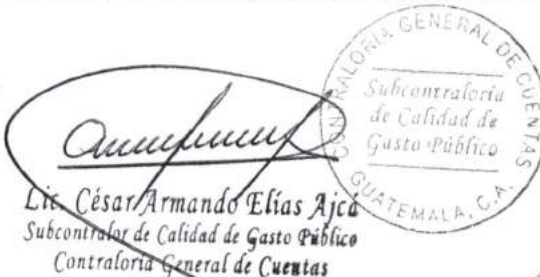 CONTRALORIA GENERAL DE CUENTAS
Subcontraloría
de Calidad de
Gasto Público
GUATEMALA, C.A.
Lic. César Armando Elías Ajcá
Subcontralor de Calidad de Gasto Público
Contraloría General de Cuentas